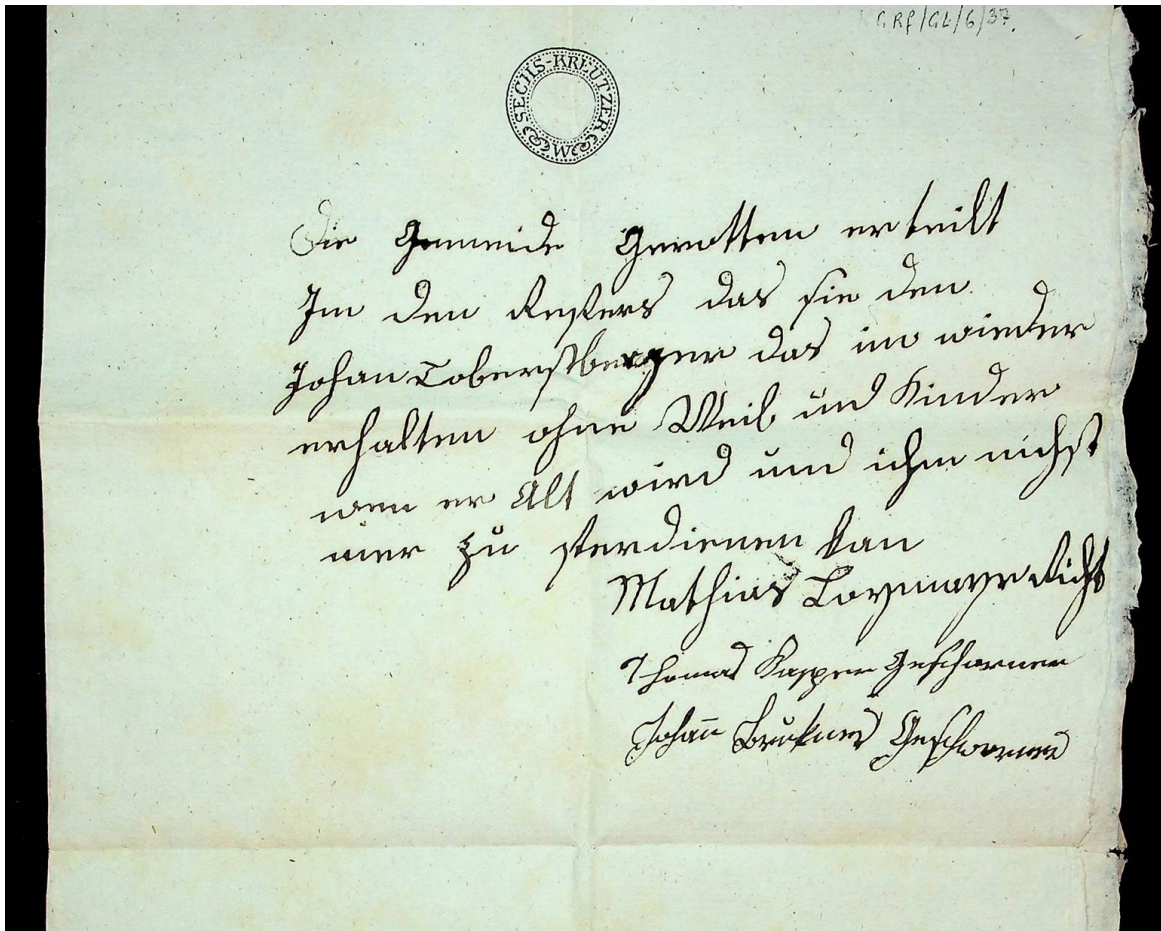 GRf/GL/6/37.
SECHS-KREUTZER
W
Die Gemeide Gerotten erteilt
Im den Refers das sie den
Johan Doberstberger das im wieder
erhalten ohne Weib und Kinder
wen er Alt wird und ihm nichst
mer zu ferdienen kan
Mathias Richt
Thomas Kasper Geschworner
Johann Brukner Geschworner